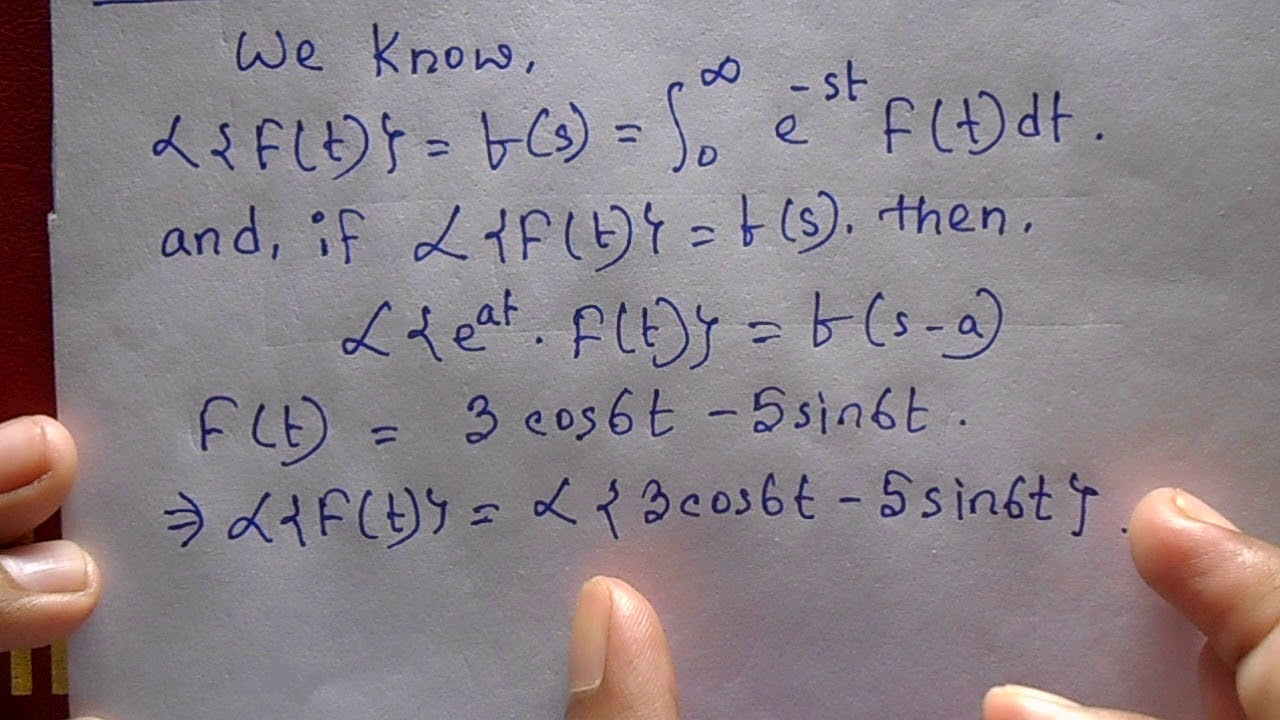 We know,
ℒ{F(t)} = f(s) = ∫₀^∞ e^-st F(t) dt.
and, if ℒ{F(t)} = f(s). then,
ℒ{e^at. F(t)} = f(s-a)
F(t) = 3 cos6t - 5 sin6t.
⇒ ℒ{F(t)} = ℒ{3 cos6t - 5 sin6t}.